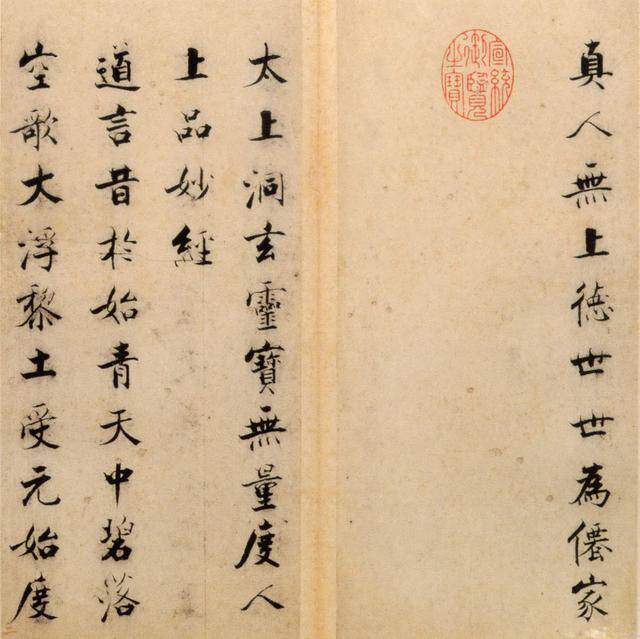 真人無上德世世為僊家
宣統御覽之寶
太上洞玄靈寶無量度人
上品妙經
道言昔於始青天中碧落
空歌大浮黎土受元始度